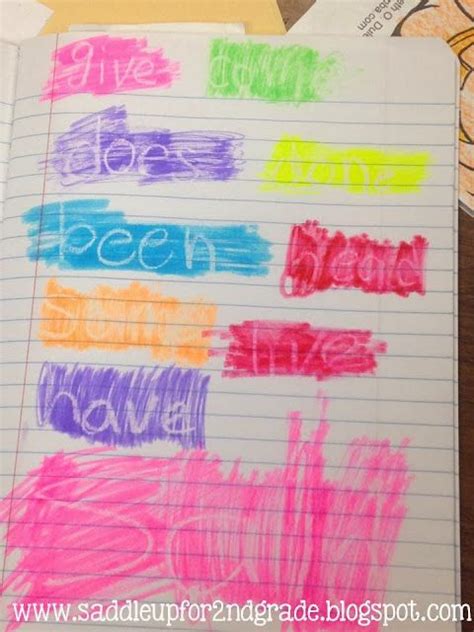 give come
does
been head
some live
have
www.saddleupfor2ndgrade.blogspot.com